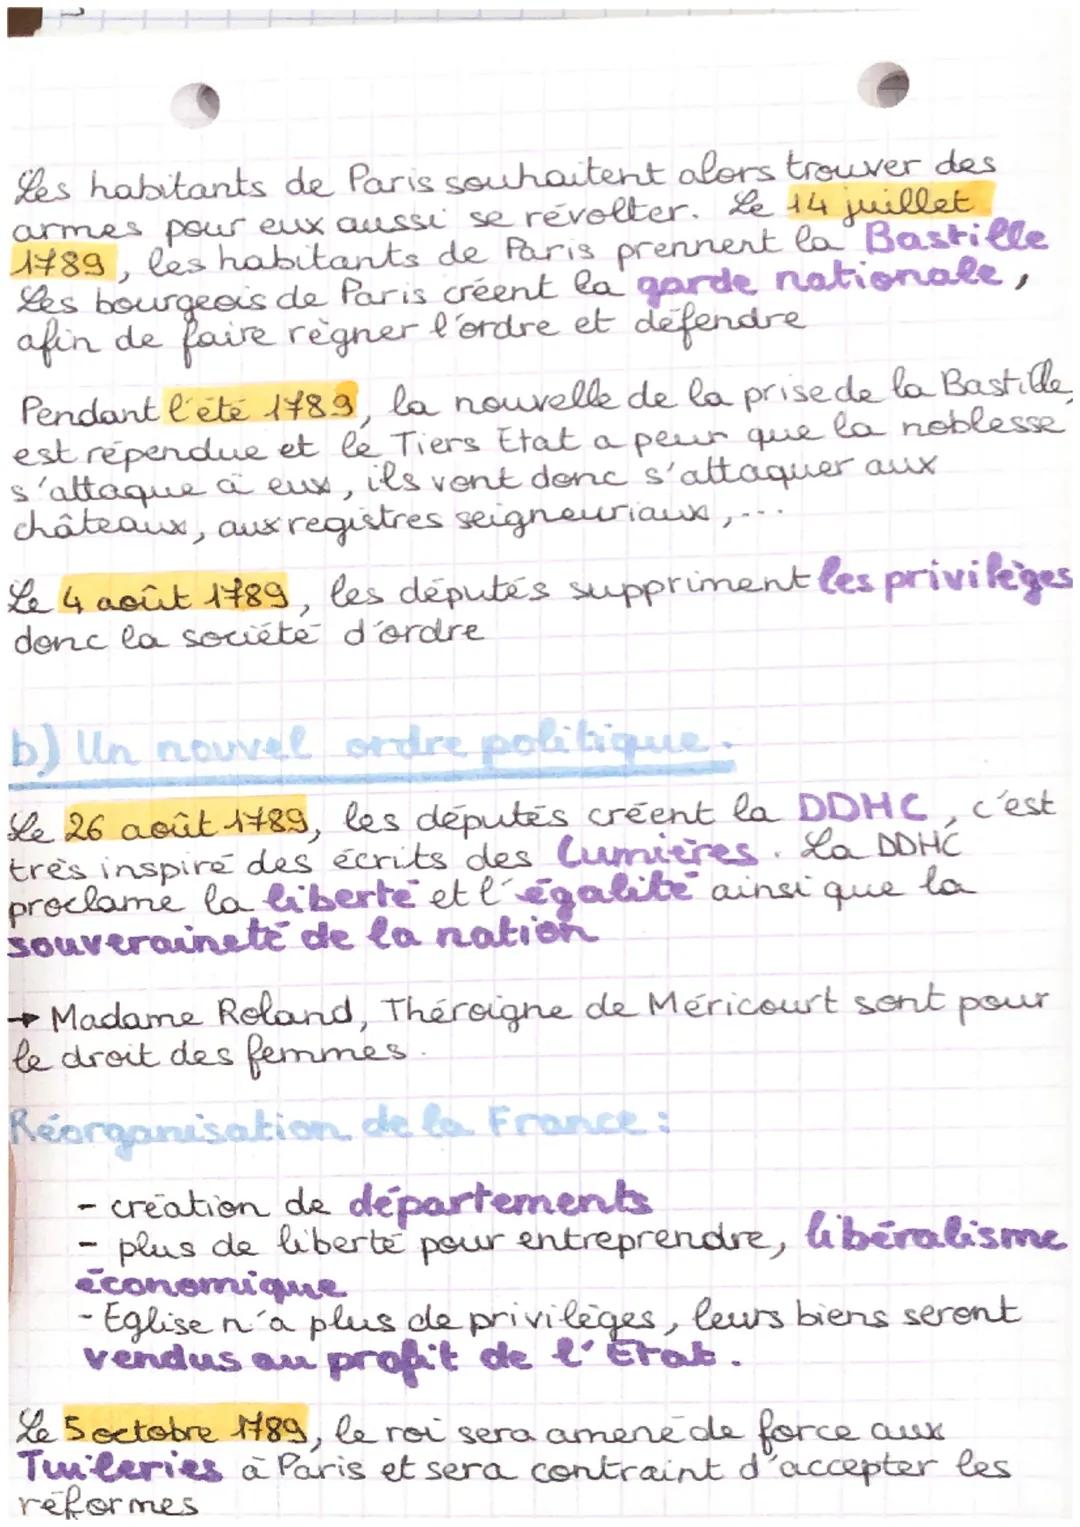 Les habitants de Paris souhaitent alors trouver des
armes pour eux aussi se révolter. Le 14 juillet
1789, les habitants de Paris prennent la Bastille
Les bourgeois de Paris créent la garde nationale,
afin de faire règner l'ordre et défendre
Pendant l'été 1789, la nouvelle de la prise de la Bastille,
est répendue et le Tiers Etat a peur que la noblesse
s'attaque à eux, ils vont donc s'attaquer aux
châteaux, aux registres seigneuriaux,...
Le 4 août 1789, les députés suppriment les privilèges
donc la société d'ordre
b) Un nouvel ordre politique.
Le 26 août 1789, les députés créent la DDHC, c'est
très inspiré des écrits des Lumières. La DDHC
proclame la liberté et l'égalité ainsi que la
souveraineté de la nation
→ Madame Roland, Théroigne de Méricourt sont pour
le droit des femmes.
Réorganisation de la France :
- création de départements
- plus de liberté pour entreprendre, libéralisme
économique
- Eglise n'a plus de privilèges, leurs biens seront
vendus au profit de l'Etat.
Le 5 octobre 1789, le roi sera amené de force aux
Tuileries à Paris et sera contraint d'accepter les
réformes